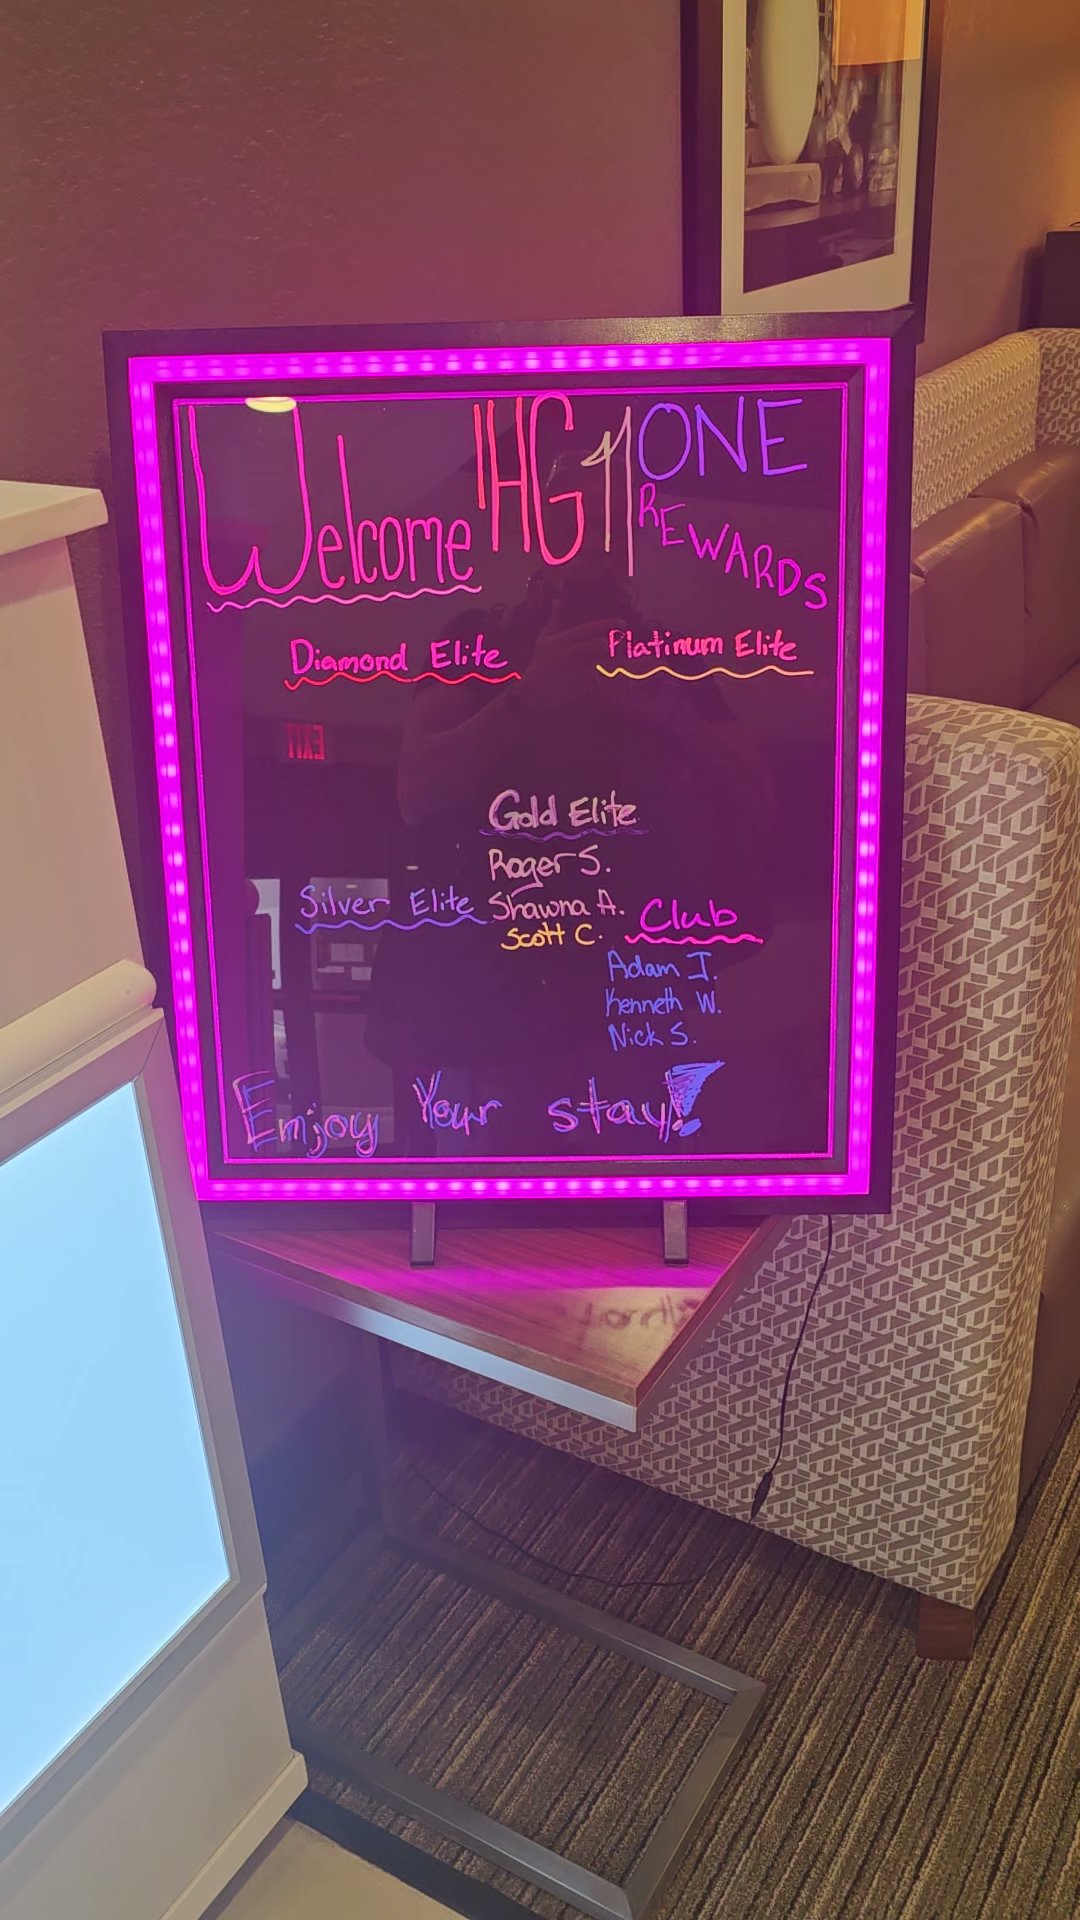 Welcome IHG 1 ONE
REWARDS
Diamond Elite
Platinum Elite
EXIT
Gold Elite
Roger S.
Shawna A.
Scott C.
Silver Elite
Club
Adam I.
Kenneth W.
Nick S.
Enjoy Your stay!